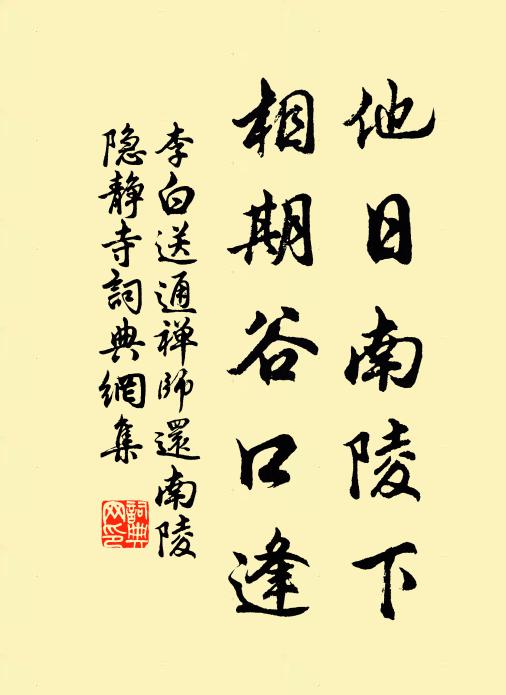 他日南陵下
相期谷口逢
李白送通禅师還南陵
隐静寺詞典網集
詞典
网印